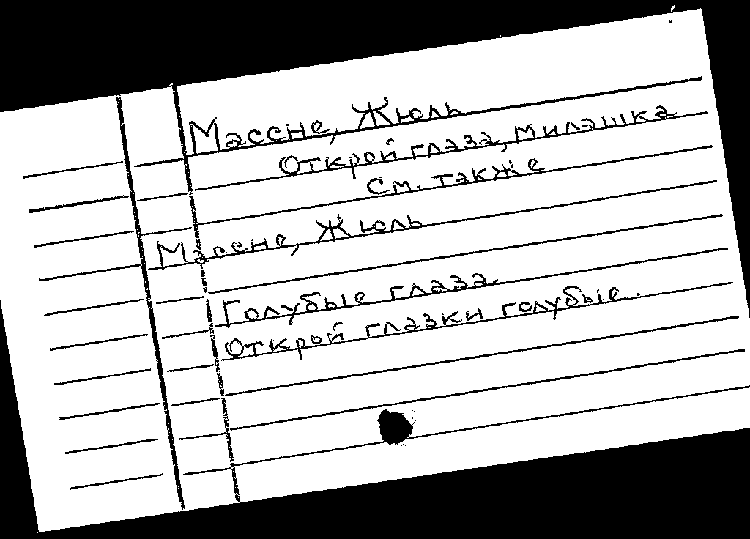 Массне, Жюль
Открой глаза, милашка
См. также
Массне, Жюль
Голубые глаза
Открой глазки голубые.